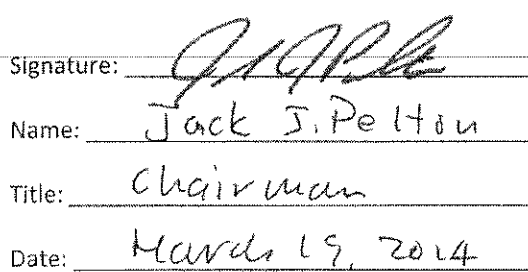 Signature: 
Name: Jack J. Pelton
Title: Chairman
Date: March 19, 2014